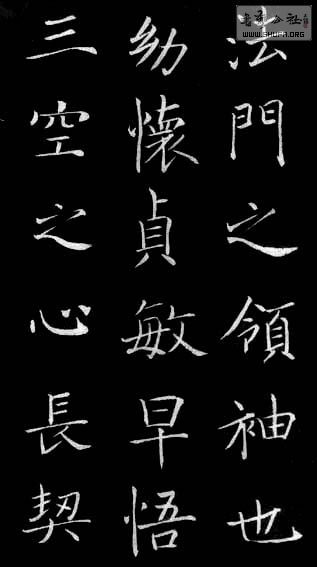 法門之領袖也
幼懷貞敏早悟
三空之心長契
書法公社
WWW.SHUFA.ORG